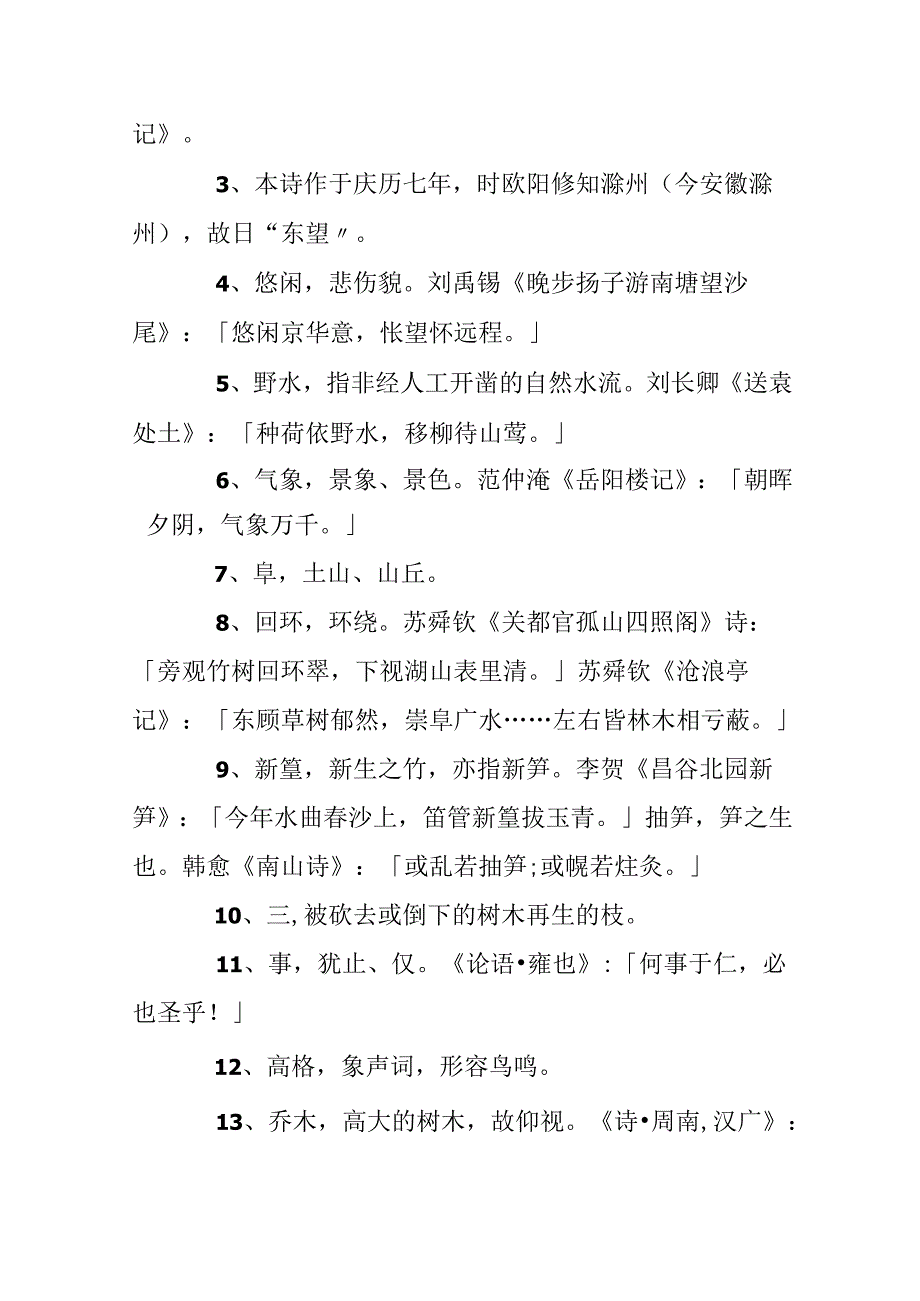 记》。
3、本诗作于庆历七年，时欧阳修知滁州（今安徽滁
州），故日“东望〃。
4、悠闲，悲伤貌。刘禹锡《晚步扬子游南塘望沙
尾》：「悠闲京华意，怅望怀远程。」
5、野水，指非经人工开凿的自然水流。刘长卿《送袁
处土》：「种荷依野水，移柳待山莺。」
6、气象，景象、景色。范仲淹《岳阳楼记》：「朝晖
夕阴，气象万千。」
7、阜，土山、山丘。
8、回环，环绕。苏舜钦《关都官孤山四照阁》诗：
「旁观竹树回环翠，下视湖山表里清。」苏舜钦《沧浪亭
记》：「东顾草树郁然，崇阜广水……左右皆林木相亏蔽。」
9、新篁，新生之竹，亦指新笋。李贺《昌谷北园新
笋》：「今年水曲春沙上，笛管新篁拔玉青。」抽笋，笋之生
也。韩愈《南山诗》：「或乱若抽笋;或幌若炷灸。」
10、三,被砍去或倒下的树木再生的枝。
11、事，犹止、仅。《论语•雍也》:「何事于仁，必
也圣乎！」
12、高格，象声词，形容鸟鸣。
13、乔木，高大的树木，故仰视。《诗•周南,汉广》：